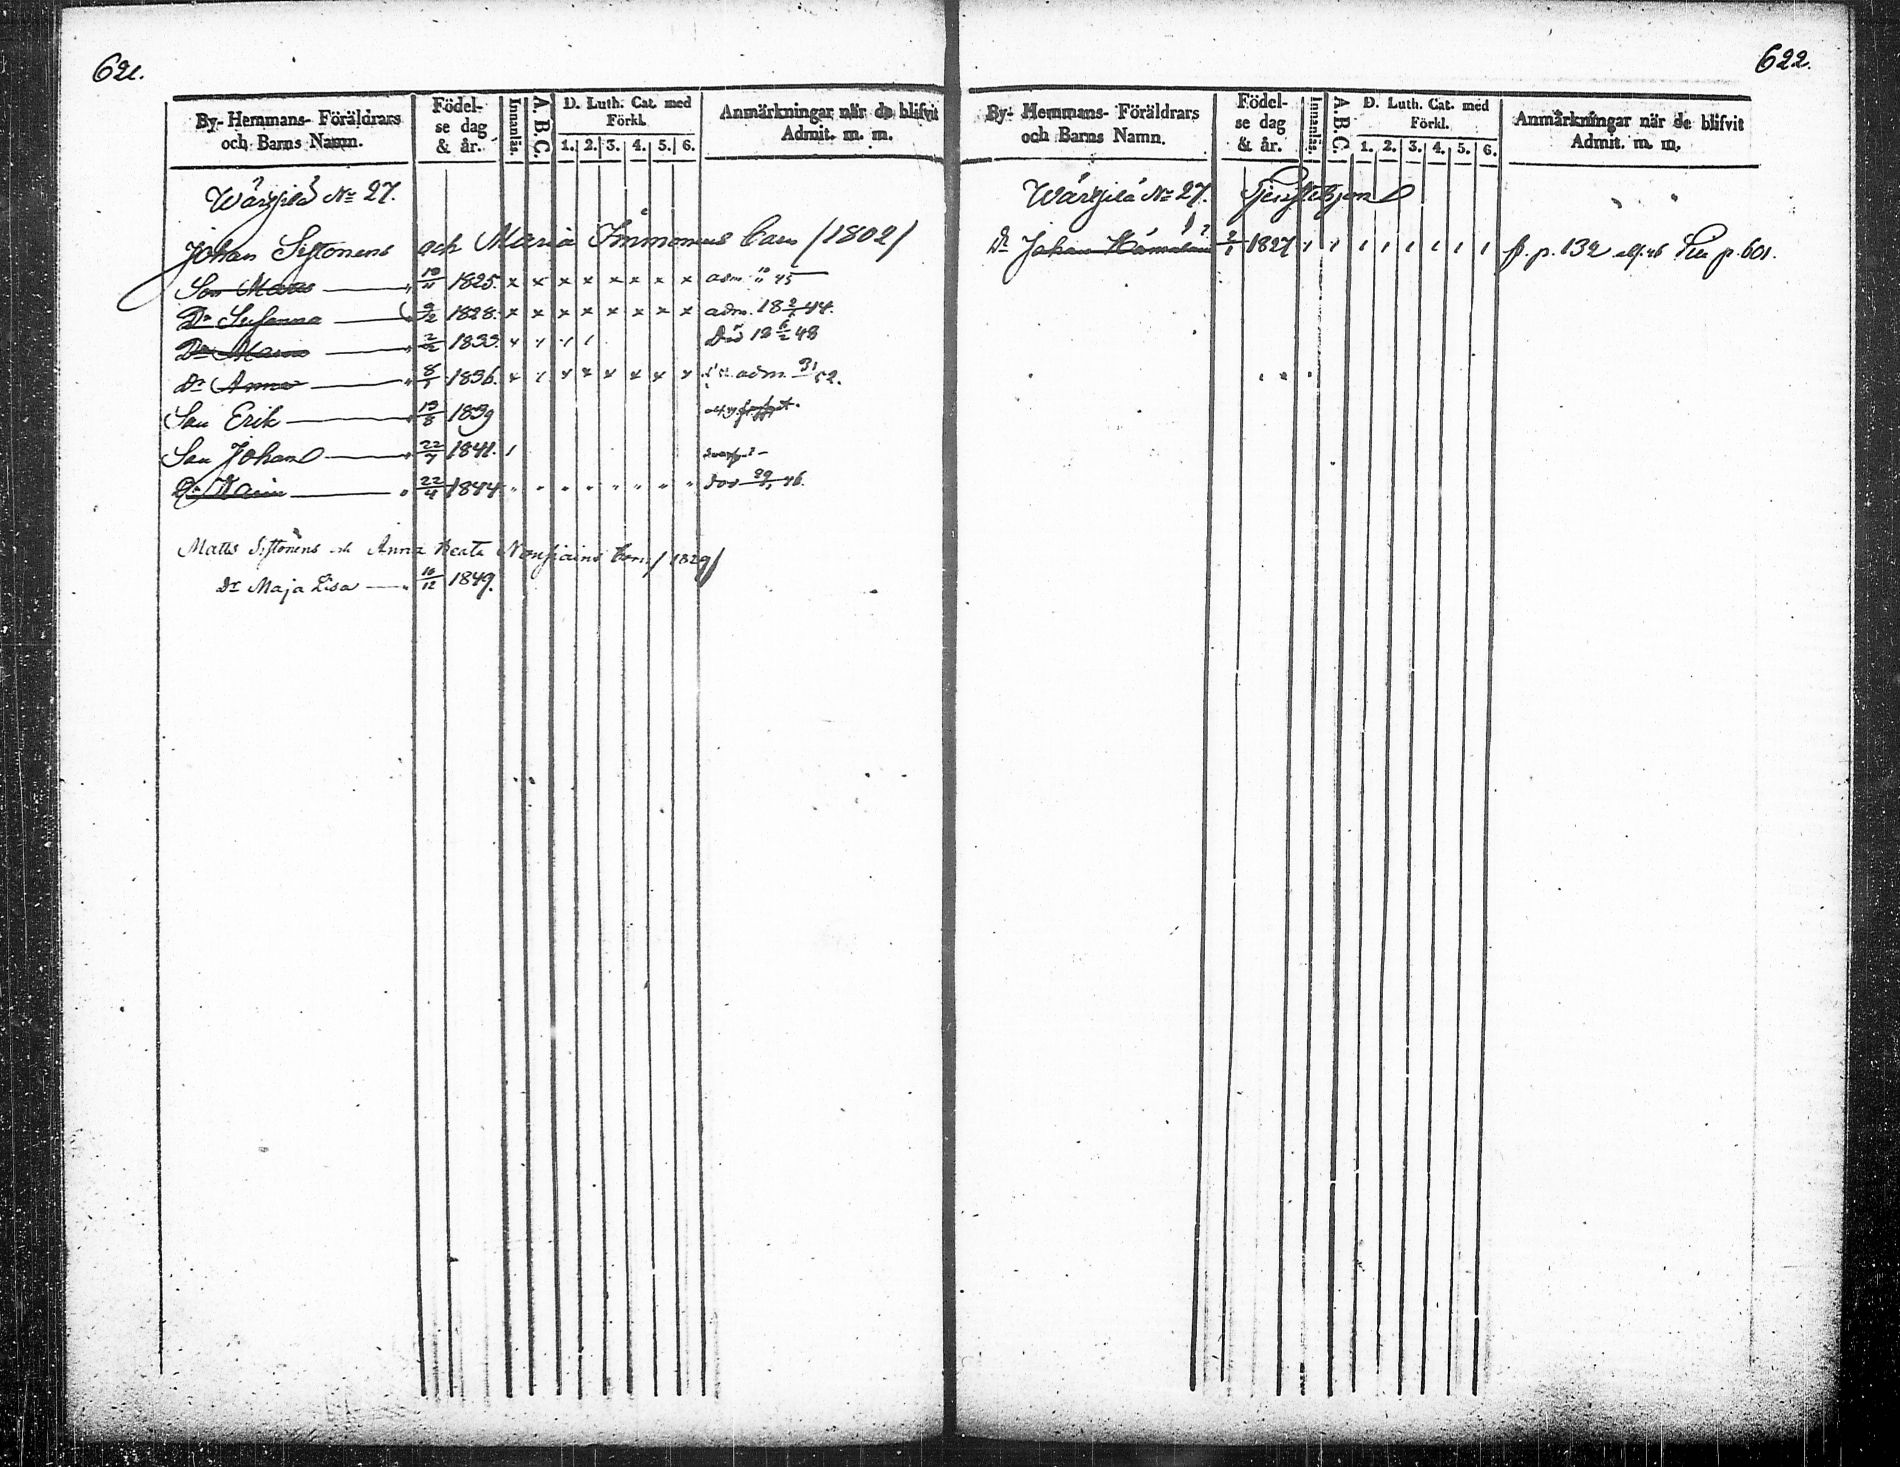 621.
By- Hemmans- Föräldrars och Barns Namn.
Födelse dag & år.
Innanläs.
A.B.C.
D. Luth. Cat. med Förkl.
1. 2. 3. 4. 5. 6.
Anmärkningar när de blifvit Admit. m. m.
Wärtsilä № 27.
Johan Sistonens och Maria Immonens barn (1802)
Son Matts 1825. x x x x x x x x
Dr Susanna 9/2 1828. x x x x x x x x adm. 18 44.
Dr Maria 2/2 1833. Död 18 48
Dr Anna 8/1 1836. adm. 31/52.
Son Erik 19/8 1839
Son Johan 22/7 1841.
Dr Karin 22/4 1844 död 46.
Matts Sistonens och Anna Beata barn (1829)
Dr Maja Lisa 16/12 1849.
622.
By- Hemmans- Föräldrars och Barns Namn.
Födelse dag & år.
Innanläs.
A.B.C.
D. Luth. Cat. med Förkl.
1. 2. 3. 4. 5. 6.
Anmärkningar när de blifvit Admit. m. m.
Wärtsilä № 27. Tjenstehjon
Johan 1827 p. 132 p. 601.